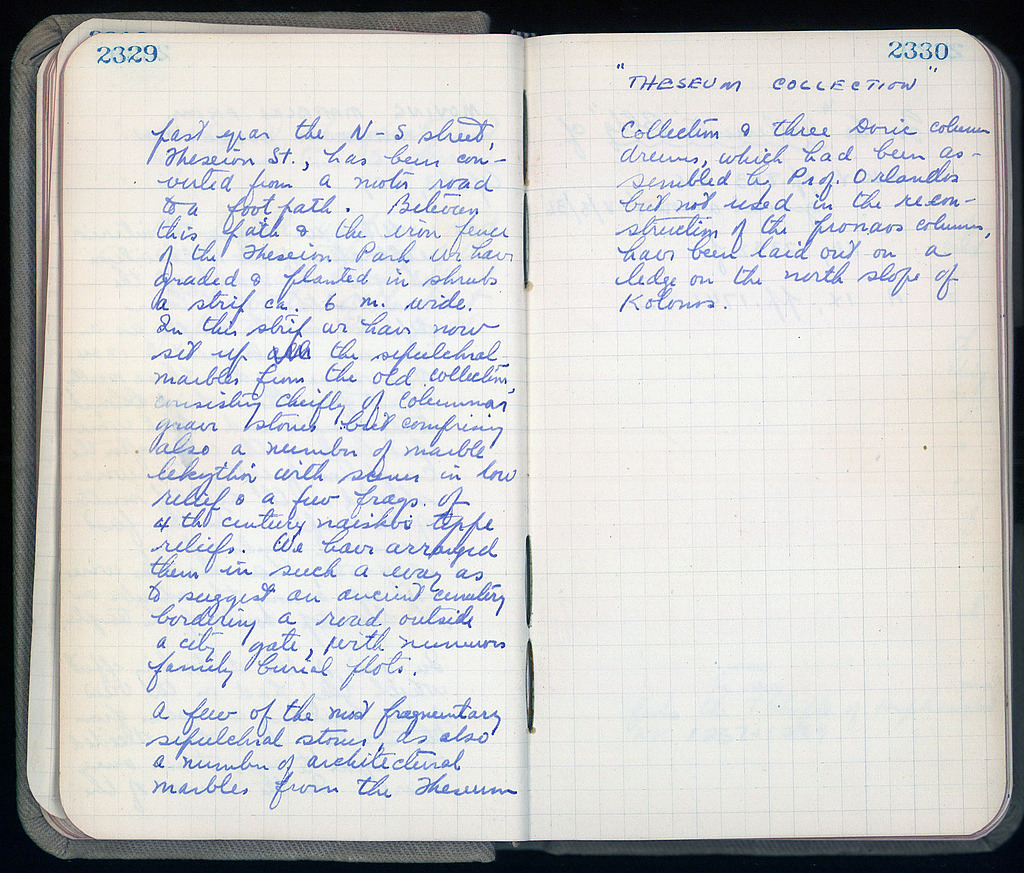 2329
past year the N-S street,
Theseion St., has been con-
verted from a motor road
to a foot path. Between
this path & the iron fence
of the Theseion Park we have
graded & planted in shrubs
a strip ca. 6 m. wide.
In this strip we have now
set up all the sepulchral
marbles from the old collection,
consisting cheifly of columnar
grave stones but comprising
also a number of marble
lekythoi with scenes in low
relief & a few frags. of
4th century naiskoi type
reliefs. We have arranged
them in such a way as
to suggest an ancient cemetery
bordering a road outside
a city gate, with numerous
family burial plots.
A few of the most fragmentary
sepulchral stones, as also
a number of architectural
marbles from the Theseum
2330
"THESEUM COLLECTION"
Collection & three Doric column
drums, which had been as-
sembled by Prof. Orlandos
but not used in the recon-
struction of the pronaos columns,
have been laid out on a
ledge on the north slope of
Kolonos.